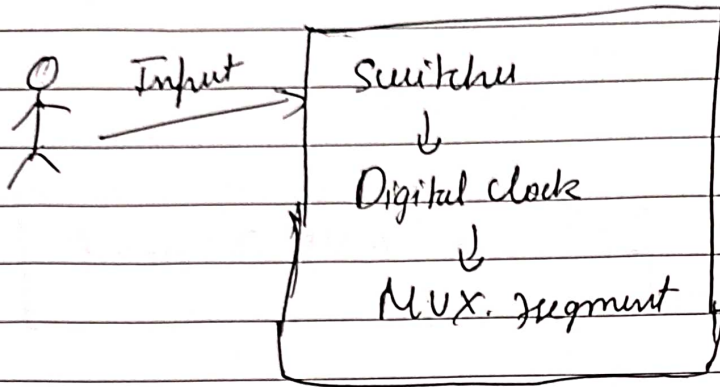 Input
Switches
Digital Clock
MUX. segment